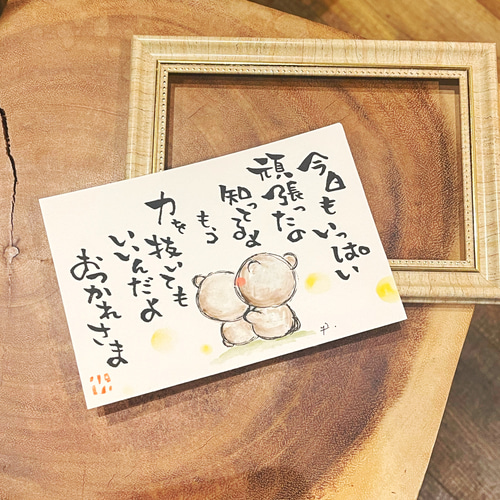 今日もいっぱい
頑張ったの
知ってるよ
もう
力を抜いても
いいんだよ
おつかれさま